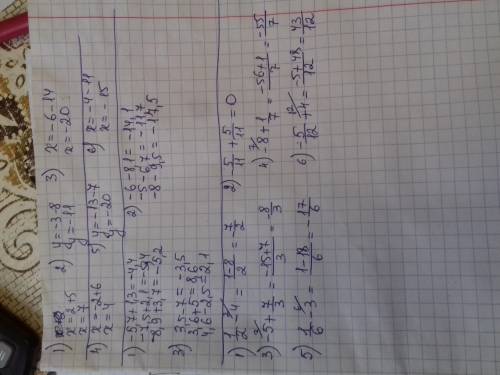 1) x=2+5 2) y=-3-8 3) x=-6-14
x=7 y=-11 x=-20
4) x=-2+6 5) y=-13-7 6) x=-4-11
x=4 y=-20 x=-15
1) -5,7+1,3=-4,4 2) -6-8,1=-14,1
-7,5+2,1=-5,4 -5-6,7=-11,7
+3,7=-5,2 -8-9,5=-17,5
3) 3,5-7=-3,5
3,6+5=8,6
4,6-2,5=2,1
1) 1/2-4=1-8/2=7/2 2) -5/11+5/11=0
3) -5+7/3=-15+7/3=-8/3 4) -8+1/7=-56+1/7=-55/7
5) 1/6-3=1-18/6=-17/6 6) -5/12+4=-5+48/12=43/12